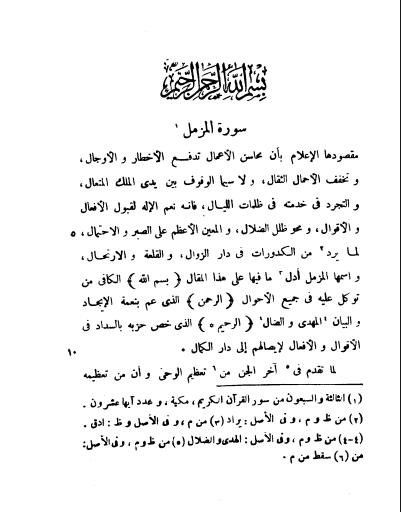 بسم الله الرحمن الرحيم
سورة المزمل ١
مقصودها الإعلام بأن محاسن الأعمال تدفع الأخطار و الأوجال ،
و تخفف الأحمال الثقال ، و لا سيما الوقوف بين يدى الملك المتعال ،
و التجرد فى خدمته فى ظلمات الليال ، فانه نعم الإله لقبول الأفعال
و الأقوال ، و محو ظلل الضلال ، و المعين الأعظم على الصبر و الاحتمال ، ٥
لما يرد ٢ من الكدورات فى دار الزوال ، و القلعة و الارتحال ،
و اسمها المزمل أدل ٣ ما فيها على هذا المقال ﴿ بسم الله ﴾ الكافى من
توكل عليه فى جميع الأحوال ﴿ الرحمن ﴾ الذى عم بنعمة الإيجاد
و البيان ٤ المهدى و الضال ٤ ﴿ الرحيم ه ﴾ الذى خص حزبه بالسداد فى
الأقوال و الأفعال لإيصالهم إلى دار الكمال . ١٠
لما تقدم فى ٥ آخر الجن من ٦ تعظيم الوحى و أن من تعظيمه
(١) الثالثة والسبعون من سور القرآن الكريم ، مكية ، و عدد آيها عشرون .
(٢) من ظ و م ، و فى الأصل : يراد (٣) من م ، و فى الأصل و ظ : ادق .
(٤-٤) من ظ و م ، و فى الأصل : الهدى والضلال (٥) من ظ و م ، و فى الأصل :
من (٦) سقط من م .